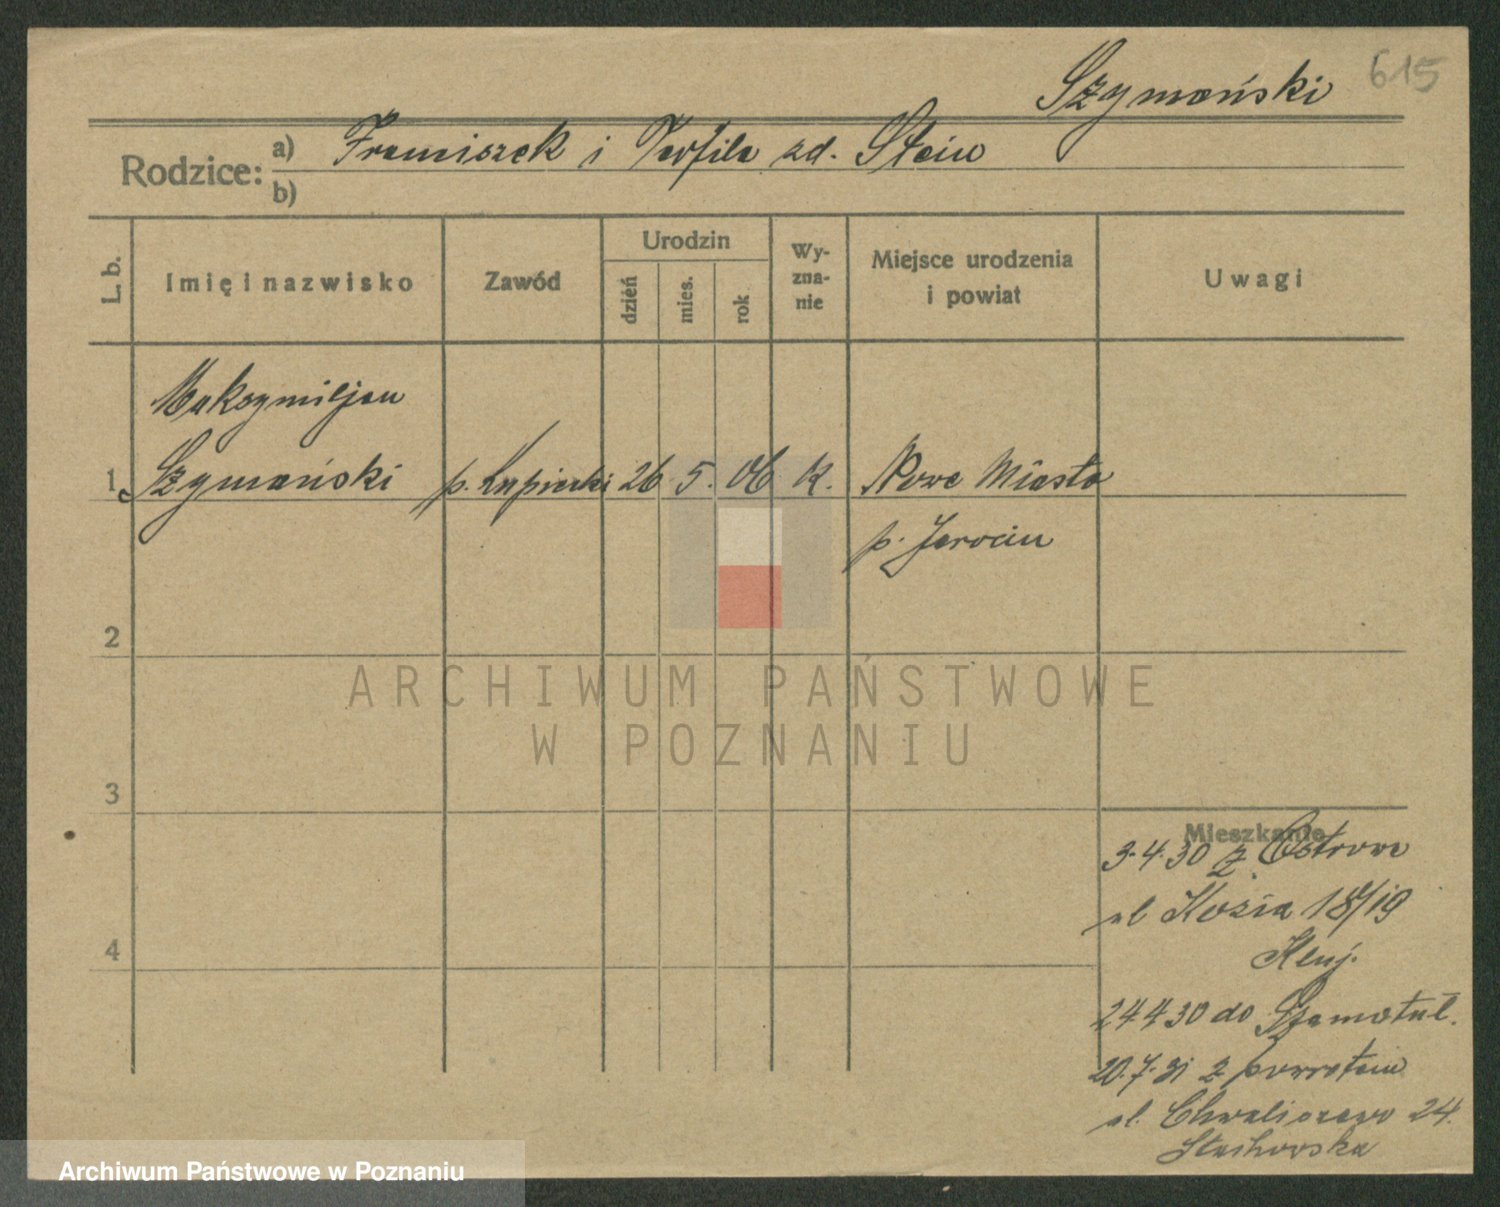 615
Szymański
Rodzice: a) Franciszek i Teofila zd. Stein
b)
L. b. Imię i nazwisko Zawód Urodzin dzień mies. rok Wy-zna-nie Miejsce urodzenia i powiat Uwagi
Maksymiljan
1 Szymański p. kupiecki 26 5. 06 k. Nowe Miasto
p. Jarocin
2
ARCHIWUM PAŃSTWOWE
W POZNANIU
3
Mieszkanie
3.4.30 z Ostrowa
ul Kozia 18/19
4
24 4 30 do Szamotuł.
20.7.31 z powrotem
ul. Chwaliszewo 24.
Stachowska
Archiwum Państwowe w Poznaniu